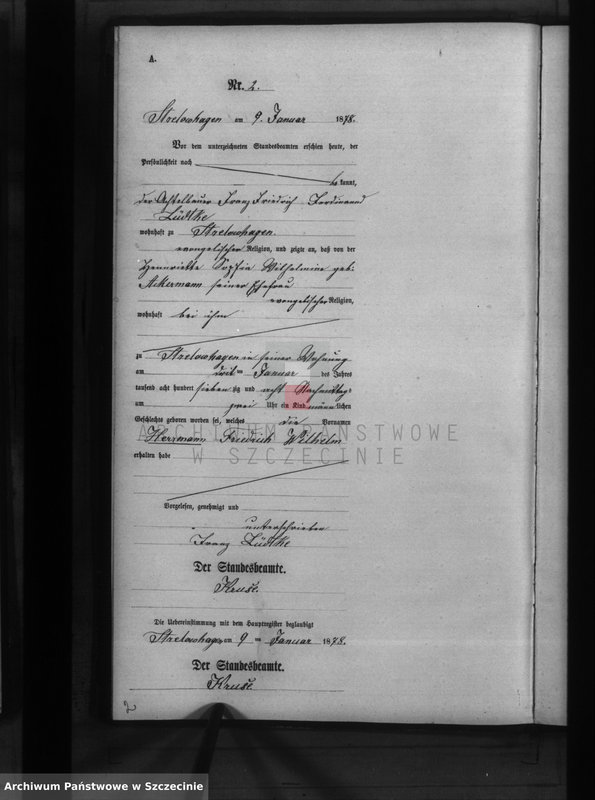 A.
Nr. 2.
Strelowhagen am 9. Januar 1878.
Vor dem unterzeichneten Standesbeamten erschien heute, der
Persönlichkeit nach
bekannt,
der Achtelbauer Franz Friedrich Ferdinand
Lüdtke
wohnhaft zu Strelowhagen
evangelischer Religion, und zeigte an, daß von der
Hennriette Sophia Wilhelmine geb:
Ackermann seiner Ehefrau
evangelischer Religion,
wohnhaft bei ihm
zu Strelowhagen in seiner Wohnung
am drit= Januar des Jahres
tausend acht hundert siebenzig und acht Nachmittags
um zwei Uhr ein Kind männlichen
Geschlechts geboren worden sei, welches die Vornamen
Herrmann Friedrich Wilhelm
erhalten habe
ARCHIWUM PAŃSTWOWE
W SZCZECINIE
Vorgelesen, genehmigt und
unterschrieben
Franz Lüdtke
Der Standesbeamte.
Kruse.
Die Uebereinstimmung mit dem Hauptregister beglaubigt
Strelowhagen am 9 = Januar 1878.
Der Standesbeamte.
Kruse
2
Archiwum Państwowe w Szczecinie